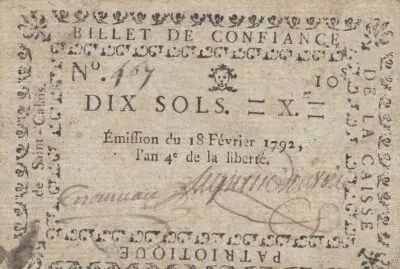 BILLET DE CONFIANCE
DE LA CAISSE
PATRIOTIQUE
de Saint-Calais.
No. 467
10
DIX SOLS. II X. II
Émission du 18 Février 1792,
l'an 4e de la liberté.